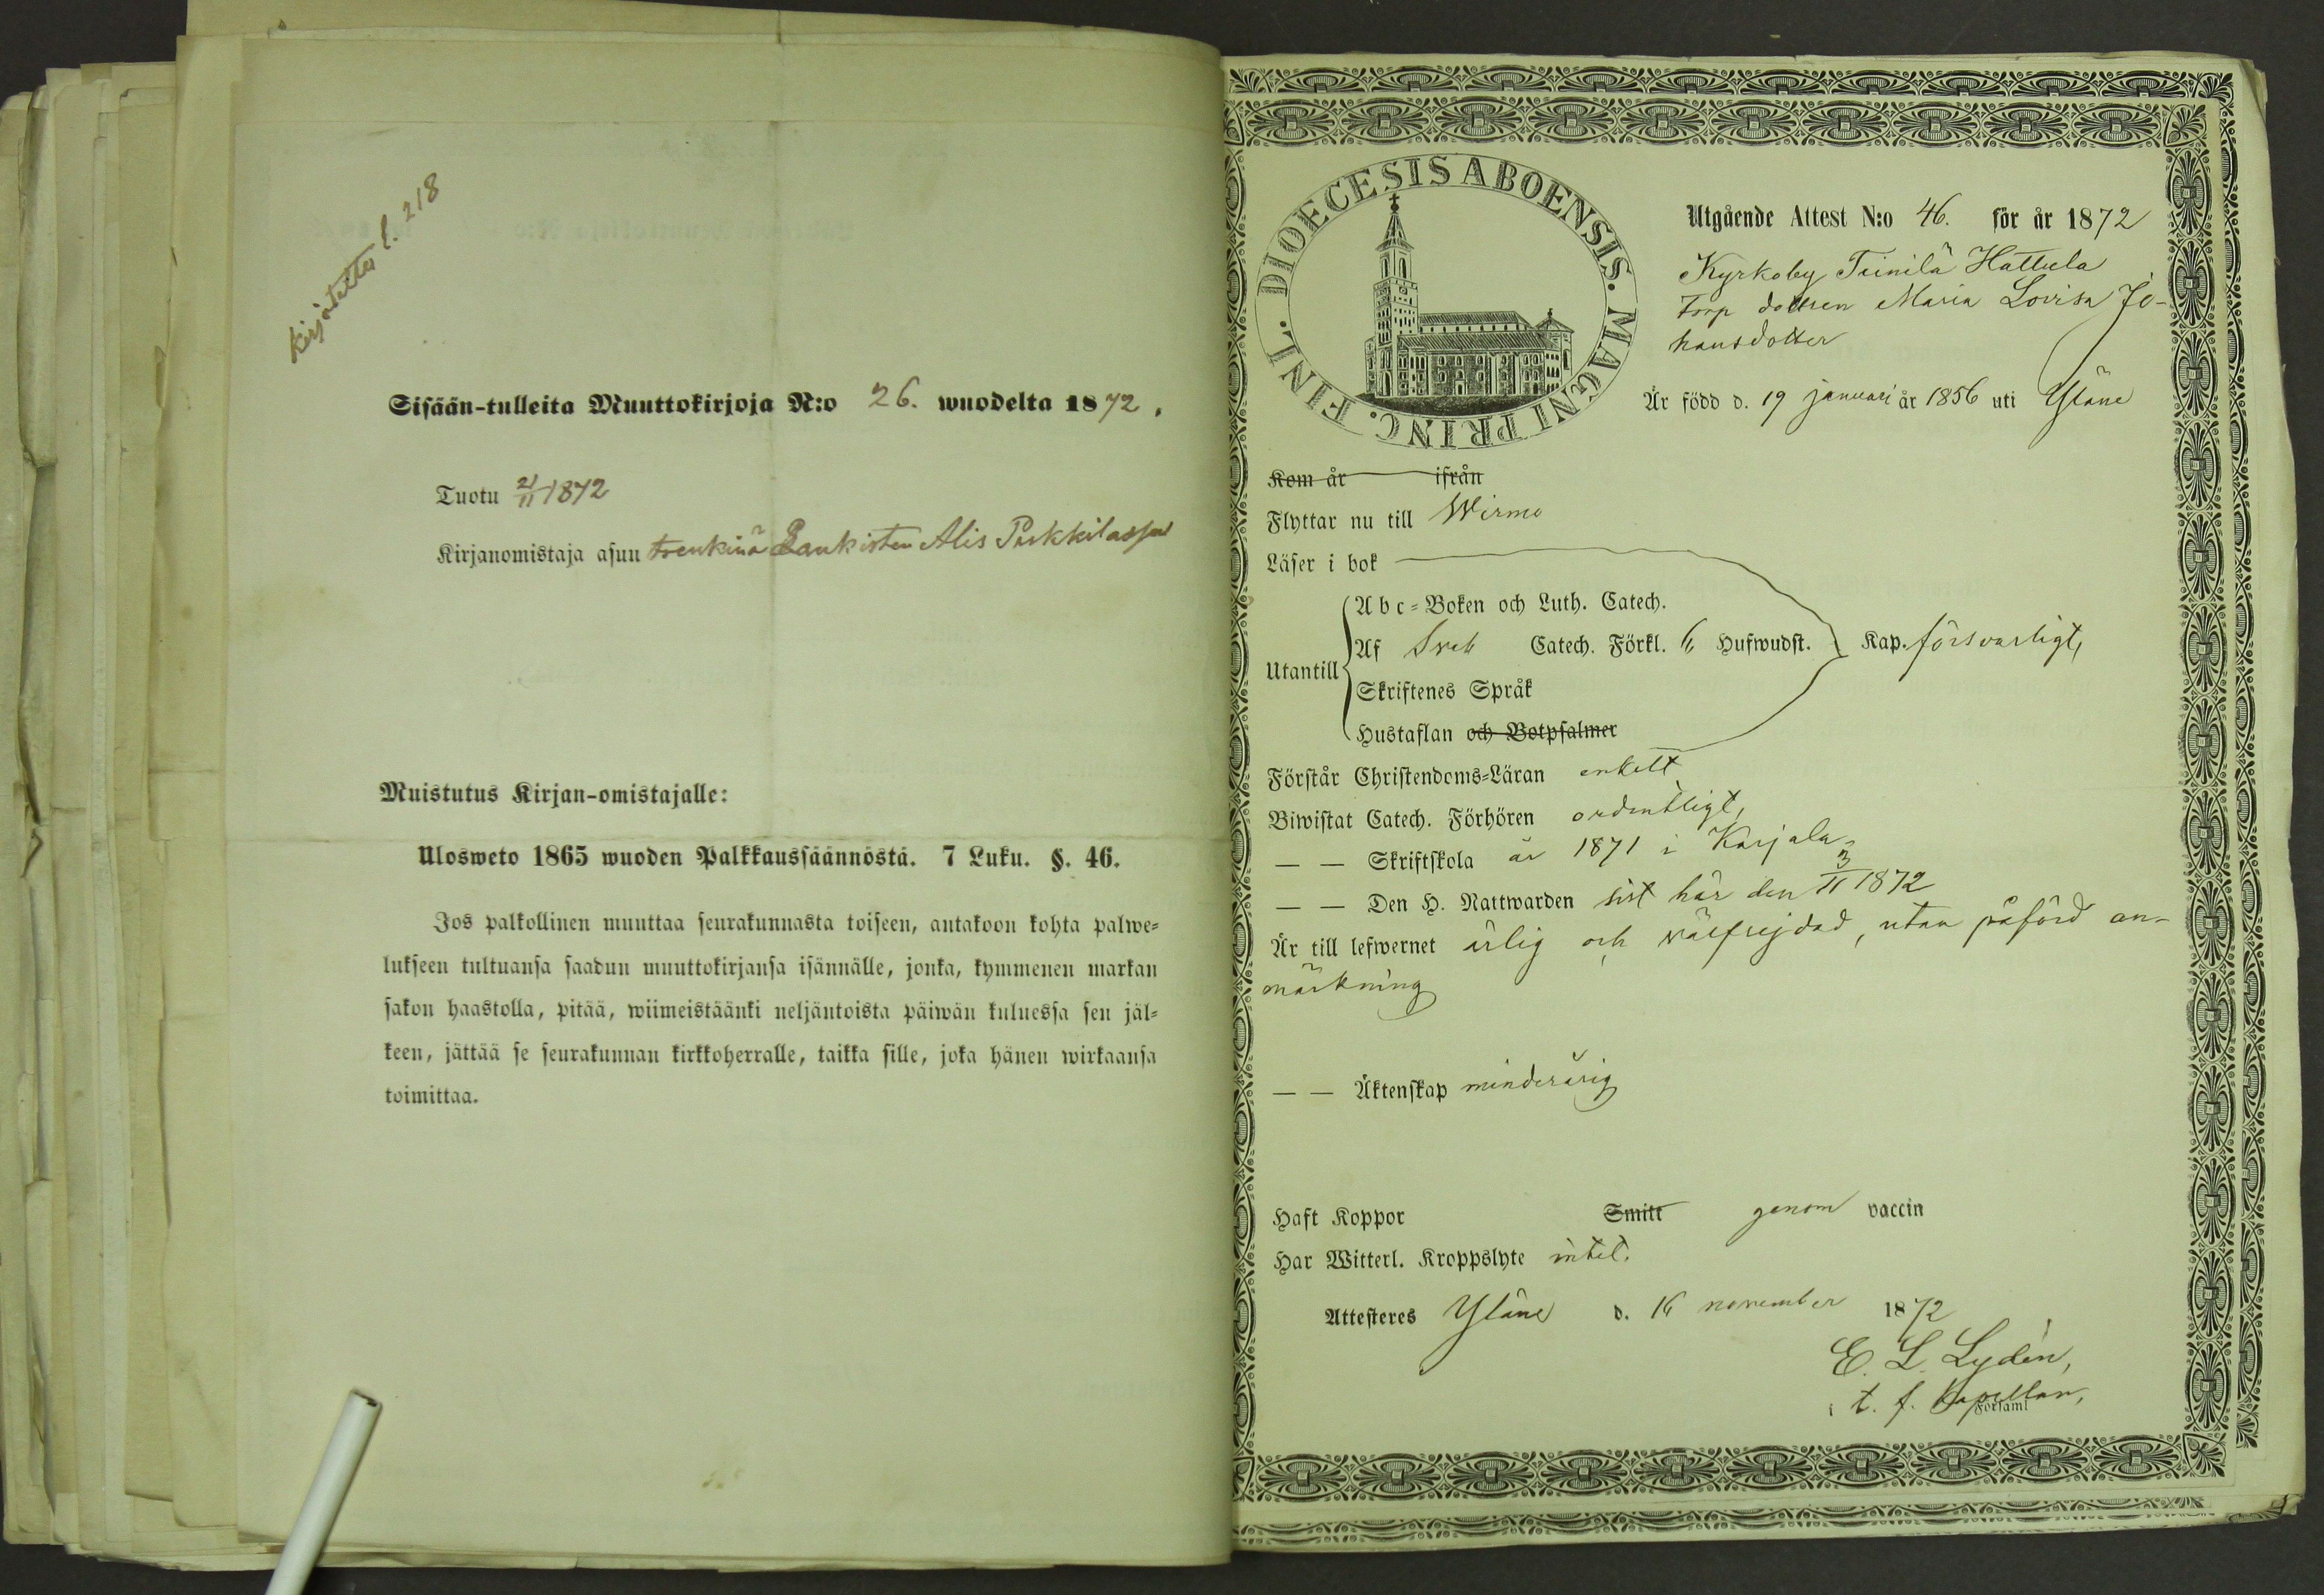 Kirjoitettu l. 218
Sisään-tulleita Muuttokirjoja N:o 26. wuodelta 1872.
Tuotu 21/11 1872
Kirjanomistaja asuu trenkinä Laukisten Alis Pirkkilassa
Muistutus Kirjan-omistajalle:
Ulosweto 1865 wuoden Palkkaussäännöstä. 7 Luku. §. 46.
Jos palkollinen muuttaa seurakunnasta toiseen, antakoon kohta palwe=
lukseen tultuansa saadun muuttokirjansa isännälle, jonka, kymmenen markan
sakon haastolla, pitää, wiimeistäänki neljäntoista päiwän kuluessa sen jäl=
keen, jättää se seurakunnan kirkkoherralle, taikka sille, joka hänen wirkaansa
toimittaa.
DIOECESIS ABOENSIS. MAGNI PRINC. FINL.
Utgående Attest N:o 46. för år 1872
Kyrkoby Hattula
Torp dottren Maria Lovisa Jo-
hansdotter
Är född d. 19 januari år 1856 uti Yläne
Kom år ifrån
Flyttar nu till Wirmo
Läser i bok
Abc=Boken och Luth. Catech.
Af Sveb Catech. Förkl. 6 Hufwudst. Kap. försvarligt,
Utantill
Skriftenes Språk
Hustaflan och Botpsalmer
Förstår Christendoms=Läran enkelt
Biwistat Catech. Förhören ordentligt,
— — Skriftskola år 1871 i Karjala,
— — Den H. Nattwarden sist här den 3/11 1872
Är till lefwernet ärlig och välfrejdad, utan påförd an-
märkning
— — Äktenskap minderårig
Haft Koppor Smitt genom vaccin
Har Witterl. Kroppslyte intet.
Attesteres Yläne d. 16 november 1872
E. L. Lydén,
t. f. Kapellan,
Församl